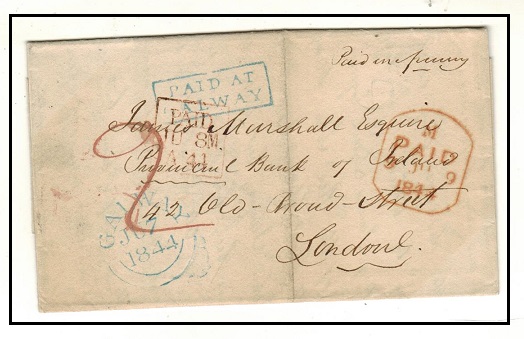 Paid one penny
PAID AT
GALWAY
PAID
8M
James Marshall Esquire
Provincial Bank of Ireland
42 Old-Broad-Street
London
2
GALWAY
JU 7
1844
M
PAID
9
1844